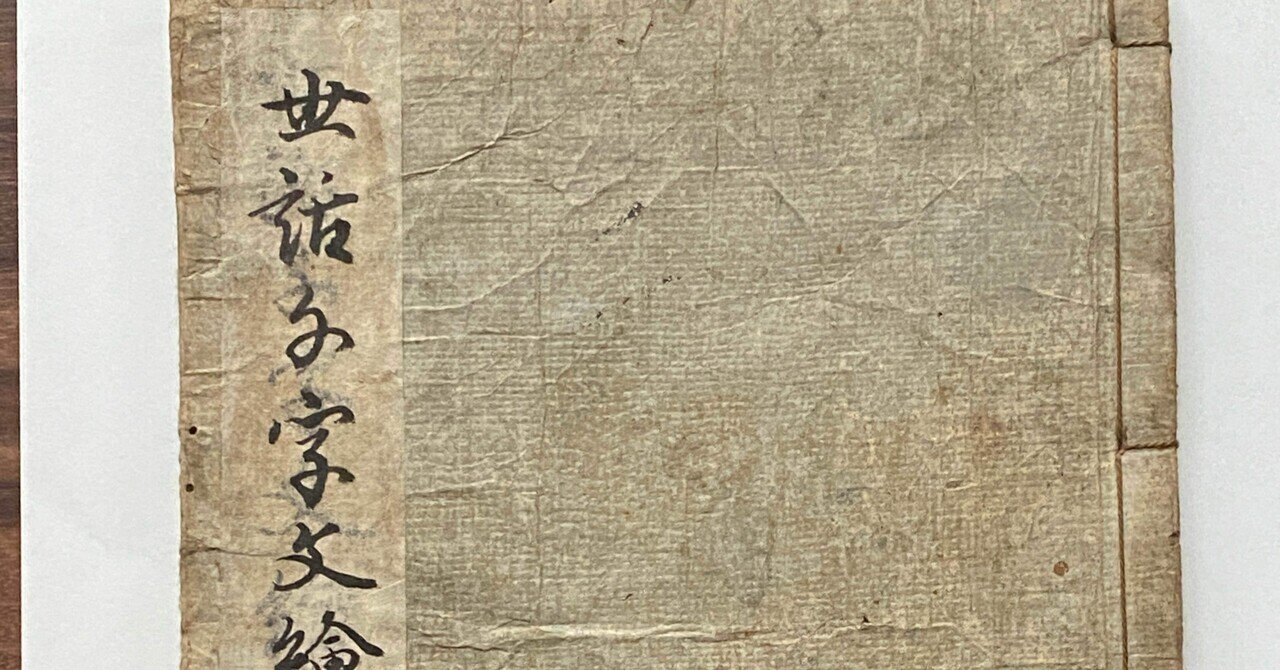 世話千字文繪